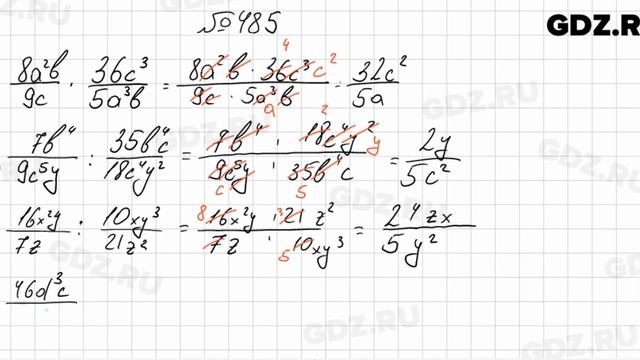 №485
GDZ.R
8a²b/9c · 36c³/5a³b = 8a²b · 36c³ 4 c²/9c · 5a³b a = 32c²/5a
7b⁴/9c⁵y : 35b⁴c/18c⁴y² = 7b⁴ · 18c⁴y² 2 y/9c⁵y c · 35b⁴c 5 = 2y/5c²
16x²y/7z : 10xy³/21z² = 8 16x²y · 3 21z²/7z · 5 10xy³ = 24zx/5y²
46d³c
GDZ.RU